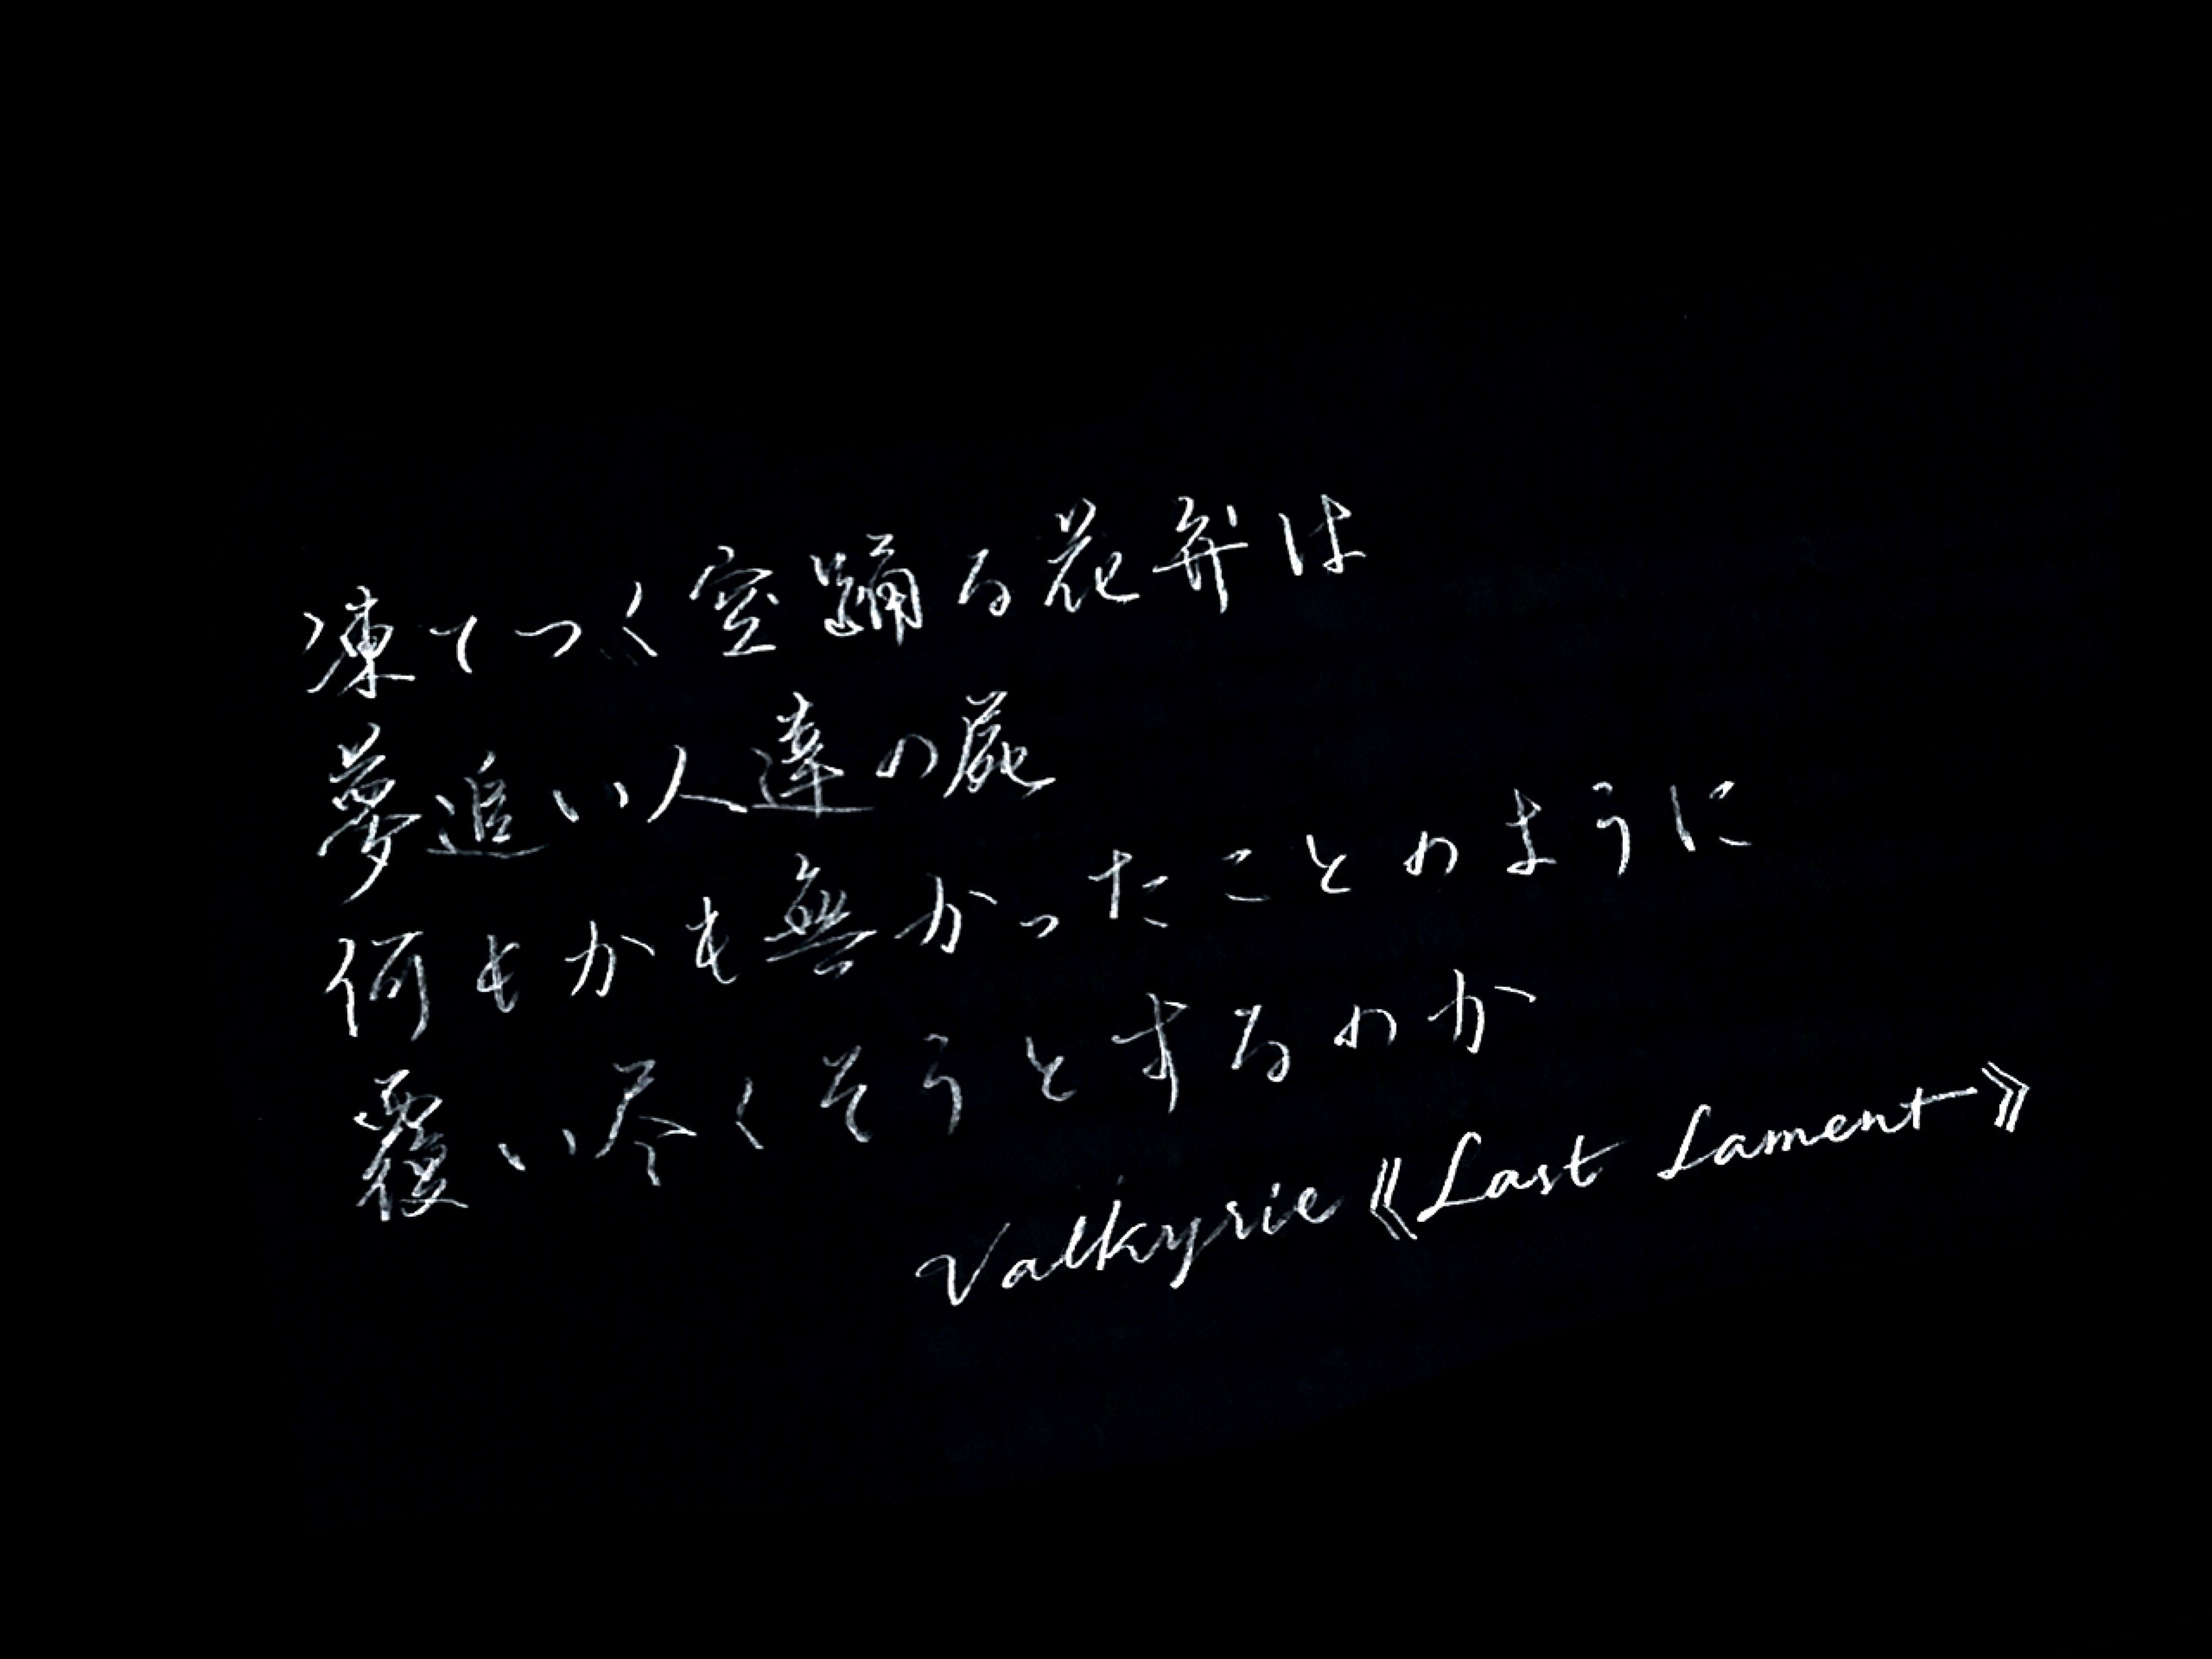 凍てつく空踊る花弁は
夢追い人達の屍
何もかも無かったことのように
覆い尽くそうとするのか
Valkyrie《Last Lament》